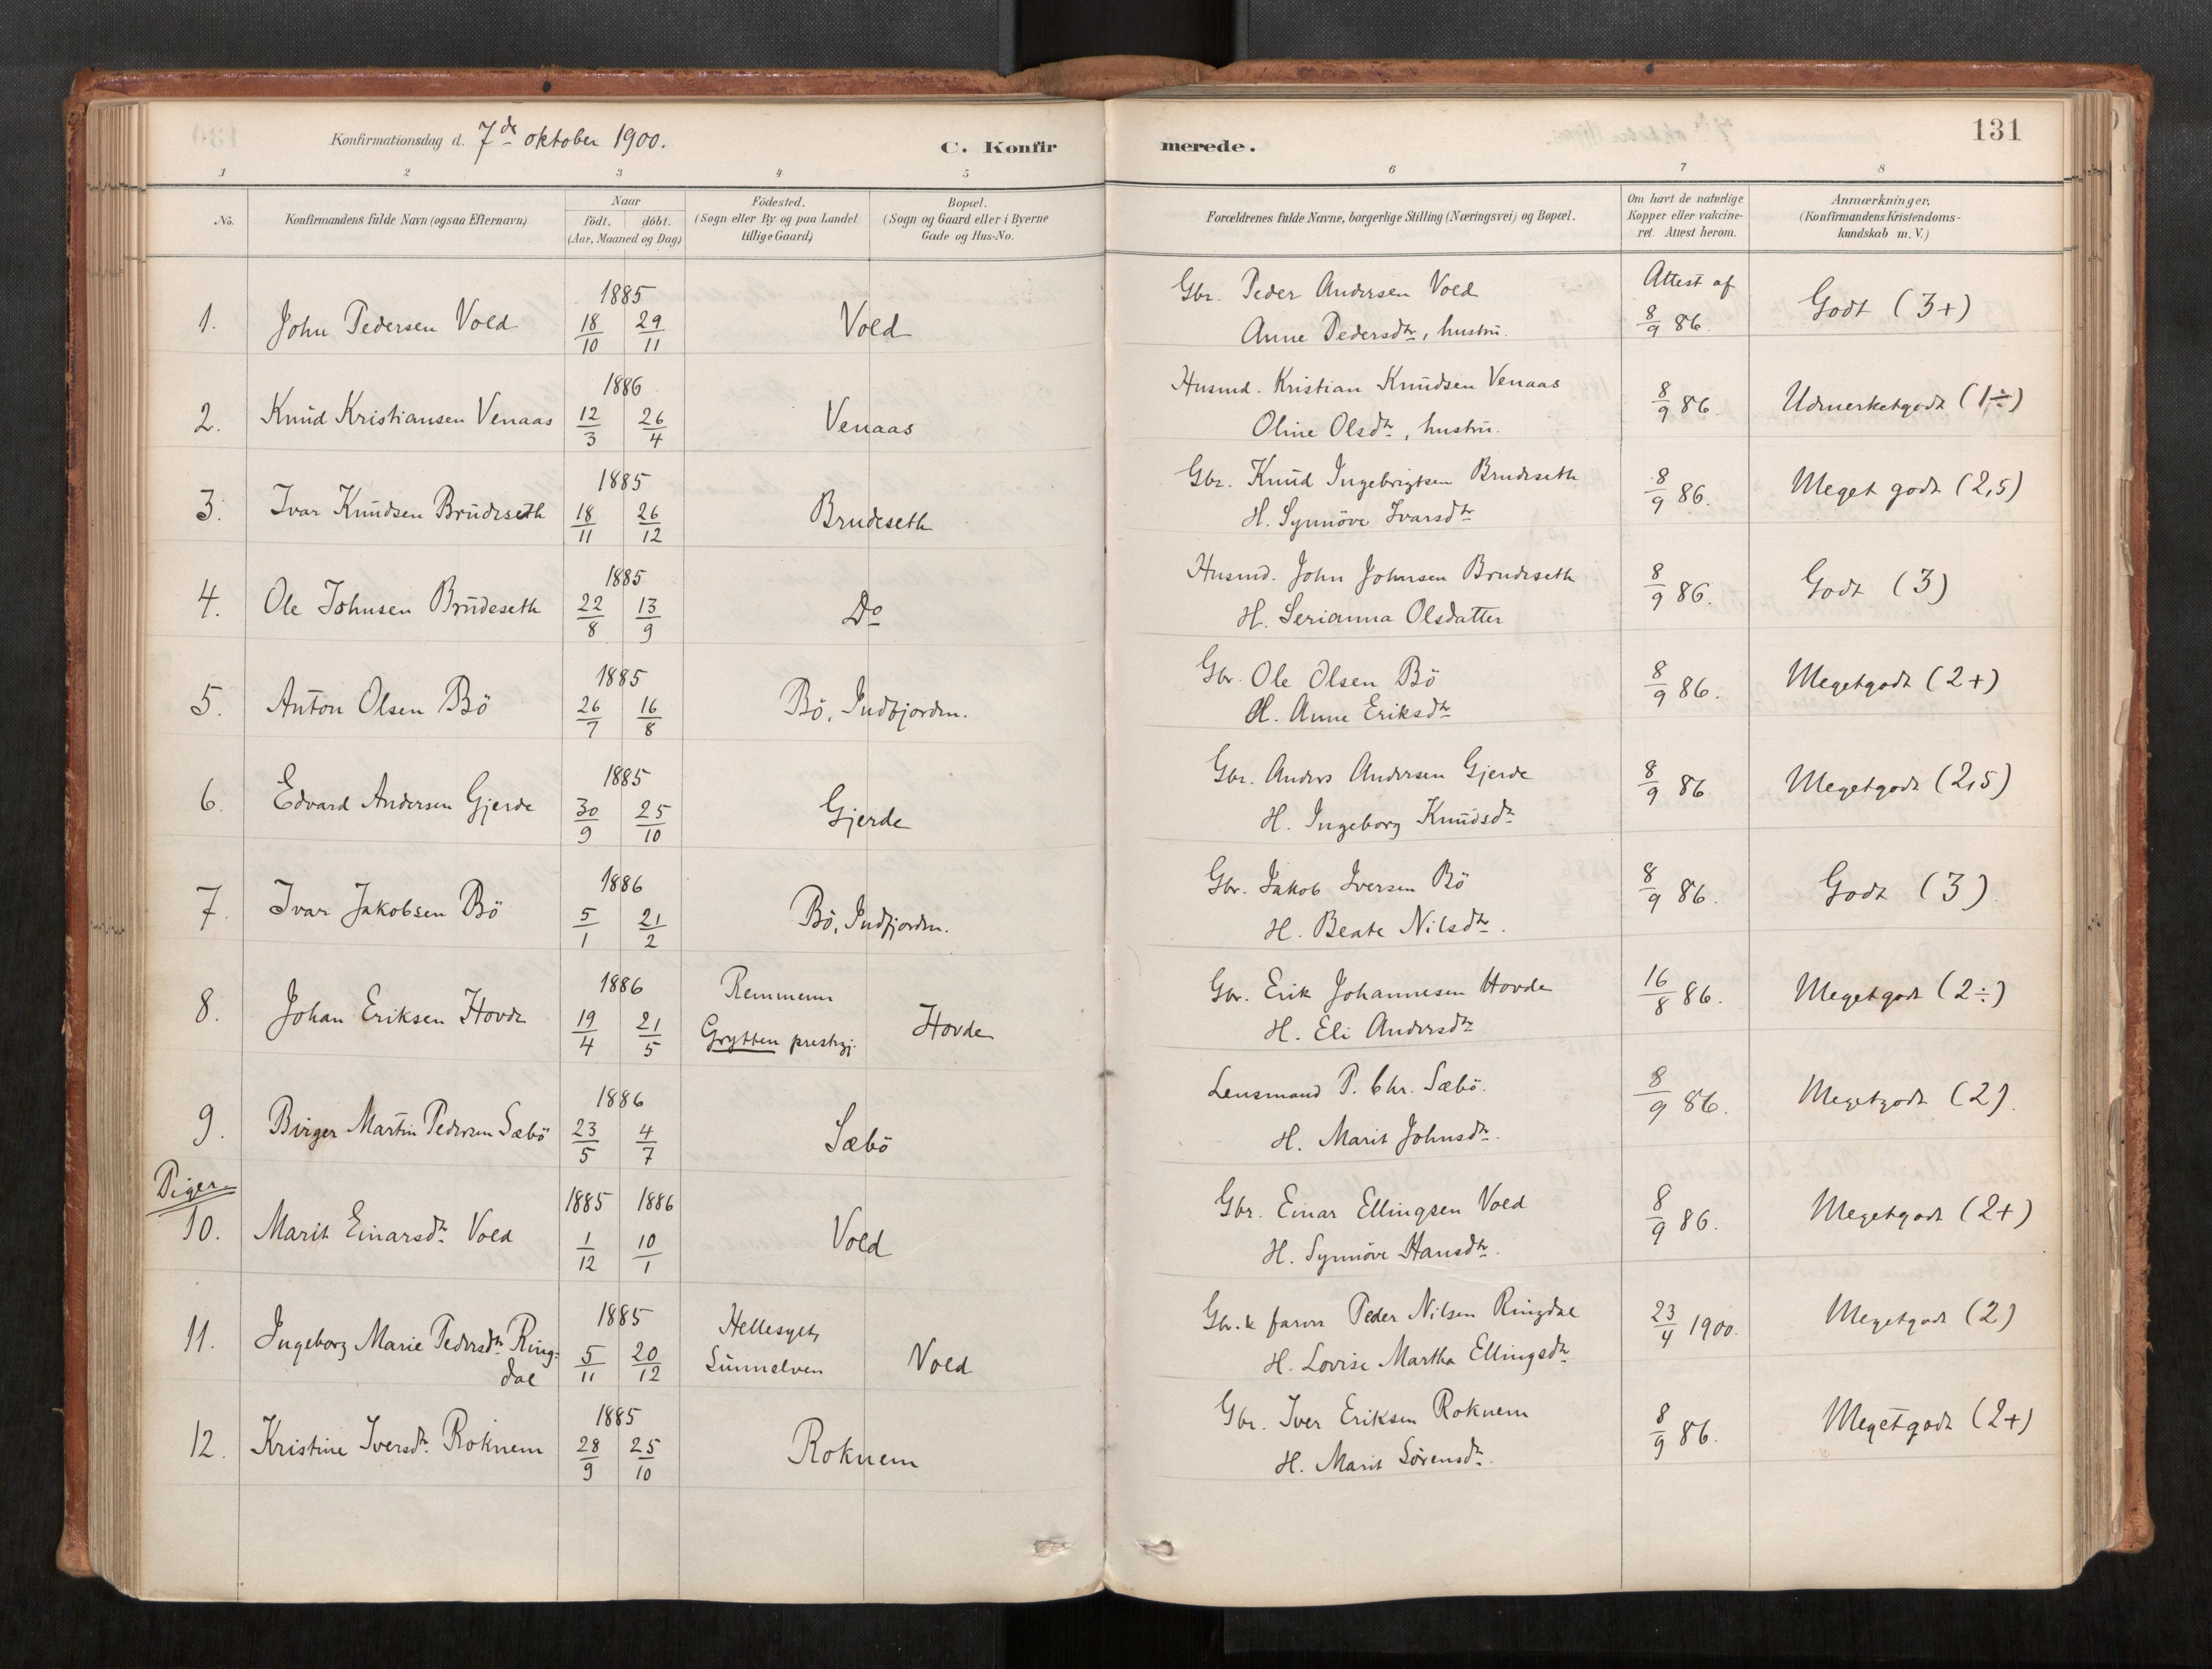 Konfirmationsdag d. 7de oktober 1900.
C. Konfirmerede.
131
1 2 3 4 5 6 7 8
No.
Konfirmandens fulde Navn (ogsaa Efternavn)
Naar
födt. döbt.
(Aar, Maaned og Dag)
Födested.
(Sogn eller By og paa Landet
tillige Gaard)
Bopæl.
(Sogn og Gaard eller i Byerne
Gade og Hus-No.
Forældrenes fulde Navne, borgerlige Stilling (Næringsvei) og Bopæl.
Om havt de naturlige
Kopper eller vakcine-
ret. Attest herom.
Anmærkninger.
(Konfirmandens Kristendoms-
kundskab m. V.)
1. John Pedersen Vold 1885 18/10 29/11 Vold
Gbr. Peder Andersen Vold
Anne Pedersdtr, hustru.
Attest af
8/9 86.
Godt (3+)
2. Knud Kristiansen Venaas 1886 12/3 26/4 Venaas
Husmd. Kristian Knudsen Venaas
Oline Olsdtr, hustru.
8/9 86.
Udmerketgodt (1÷)
3. Ivar Knudsen Brudeseth 1885 18/11 26/12 Brudeseth
Gbr. Knud Ingebrigtsen Brudeseth
H. Synnöve Ivarsdtr
8/9 86.
Meget godt (2,5)
4. Ole Johnsen Brudeseth 1885 22/8 13/9 Do
Husmd. John Johnsen Brudeseth
H. Serianna Olsdatter
8/9 86.
Godt (3)
5. Anton Olsen Bö 1885 26/7 16/8 Bö, Indfjorden.
Gbr. Ole Olsen Bö
H. Anne Eriksdtr
8/9 86.
Megetgodt (2+)
6. Edvard Andersen Gjerde 1885 30/9 25/10 Gjerde
Gbr. Anders Andersen Gjerde
H. Ingeborg Knudsdtr
8/9 86
Megetgodt (2,5)
7. Ivar Jakobsen Bö 1886 5/1 21/2 Bö, Indfjorden.
Gbr. Jakob Iversen Bö
H. Beate Nilsdtr.
8/9 86.
Godt (3)
8. Johan Eriksen Hovde 1886 19/4 21/5 Remmem
Grytten prestgj. Hovde
Gbr. Erik Johannesen Hovde
H. Eli Andersdtr
16/8 86.
Megetgodt (2÷)
9. Birger Martin Pedersen Sæbö 1886 23/5 4/7 Sæbö
Lensmand P. Chr. Sæbö.
H. Marit Johnsdtr.
8/9 86.
Megetgodt (2).
Piger.
10. Marit Einarsdtr. Vold 1885 1886 1/12 10/1 Vold
Gbr. Einar Ellingsen Vold
H. Synnöve Hansdtr.
8/9 86.
Megetgodt (2+)
11. Ingeborg Marie Pedersdtr Ring=
dal 1885 5/11 20/12 Hellesylt,
Sunnelven Vold
Gbr. & farver Peder Nilsen Ringdal
H. Lovise Martha Ellingsdtr
23/4 1900.
Megetgodt (2)
12. Kristine Iversdtr. Roknem 1885 28/9 25/10 Roknem
Gbr. Iver Eriksen Roknem
H. Marit Sörensdtr.
8/9 86.
Megetgodt (2+)